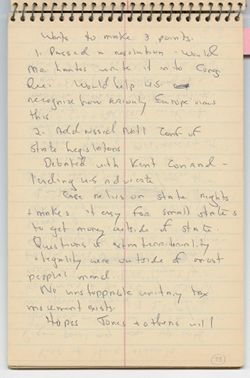 Wants to make 3 points.
1. Passed a resolution - Would
write it into Cong.
Rec. Would help us
recognize how seriously Europe views
this
2. Addressed Natl Conf of
State Legislators
Debated with Kent Conrad -
leading US advocate
Case relies on state rights
+ makes it easy for small states
to get money outside of state.
Questions of extraterritoriality
+ legality were outside of most
people's mind.
No unstoppable unitary tax
movement exists.
Hopes Jones + others will
(13)